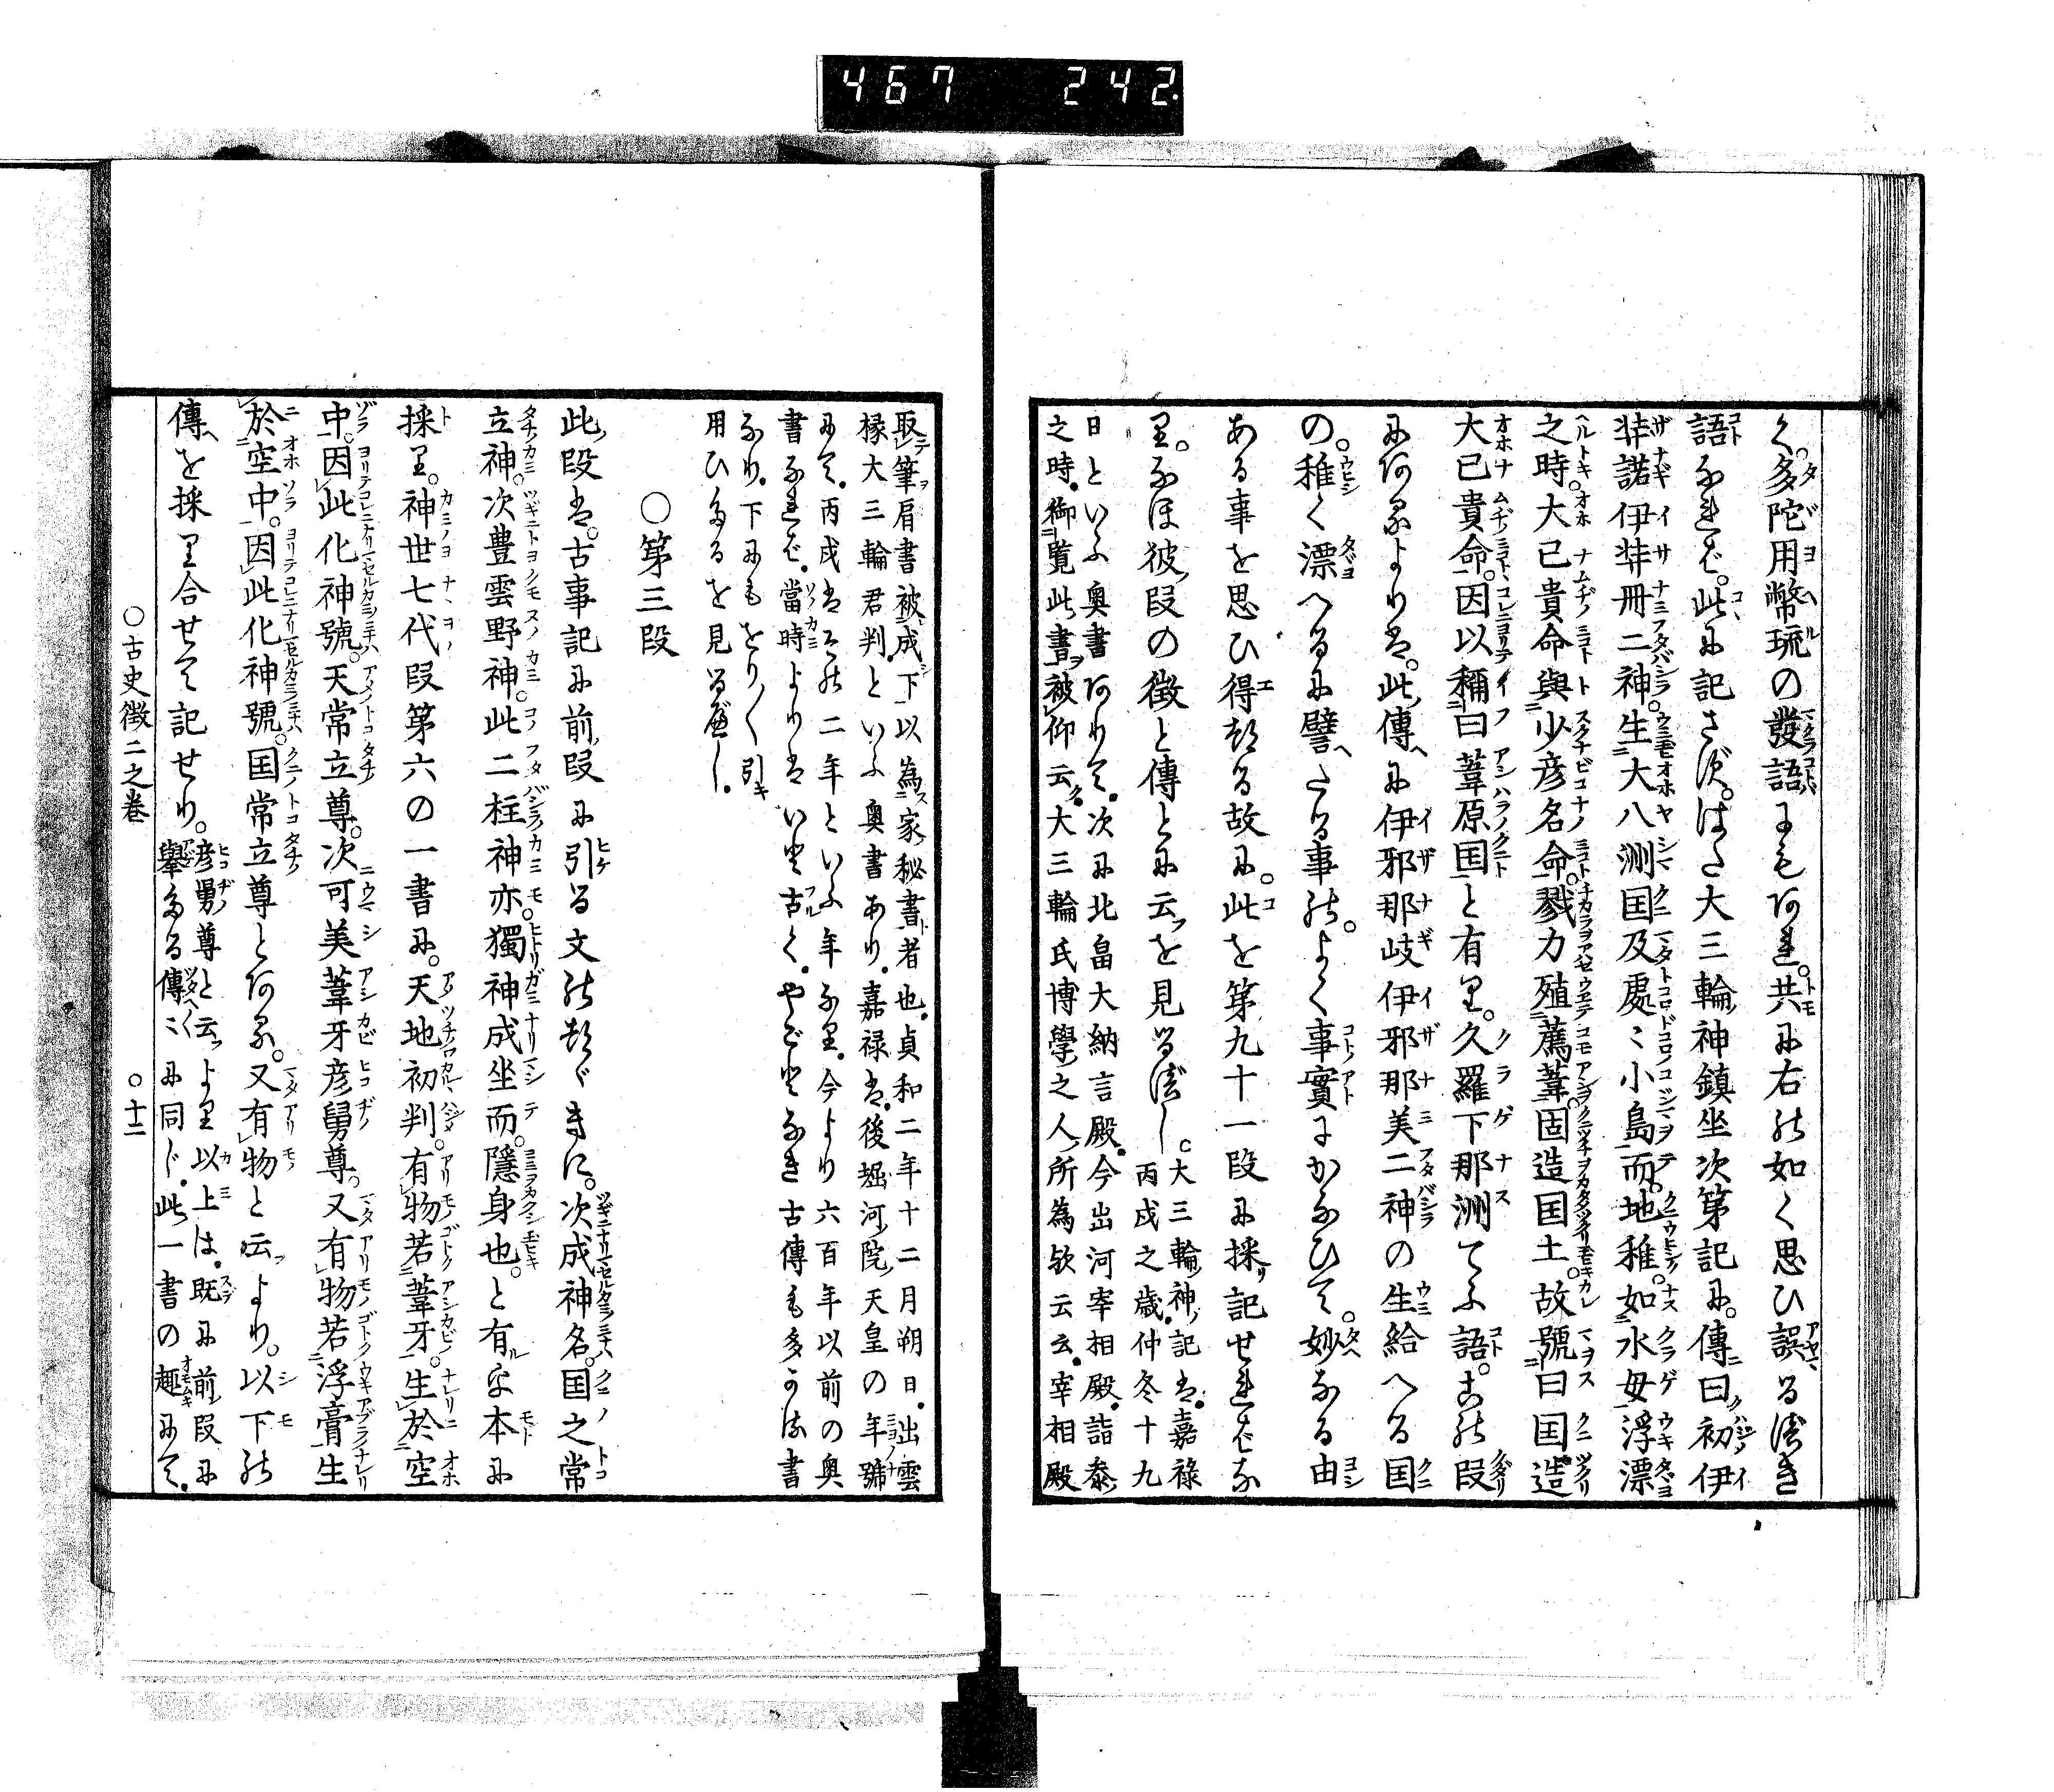 467 242
く。多陀用幣琉の發語にもあれ。共に右の如く思ひ誤るべき
語なれば。此に記さず。はた大三輪神鎮坐次第記に。傳曰初伊
弉諾伊弉冊二神。生大八洲国及處々小島而。地稚如水母浮漂
之時。大己貴命與少彦名命。戮力殖薦葦。固造国土。故號曰国造
大己貴命。因以稱曰葦原国と有り。久羅下那洲てふ語。古の段
にあるよりは。此傳に伊邪那岐伊邪那美二神の生給へる国
の。稚く漂へるに譬へたる事の。よく事實にかなひて。妙なる由
ある事を思ひ得たる故に。此を第九十一段に採記せればな
り。なほ彼段の徴と傳とに云を見るべし。
大三輪神記は。嘉祿
丙戌之歳。仲冬十九
日といふ奥書ありて。次に北畠大納言殿。今出河宰相殿。詣泰
之時。御覧此書被仰云。大三輪氏博學之人所為欤云云。宰相殿
取筆肩書被成下以為家秘書者也。貞和二年十二月朔日。出雲
椽大三輪君判。といふ奥書あり。嘉禄は。後堀河院天皇の年號
にて。丙戌はその二年といふ年なり。今より六百年以前の奥
書なれば。當時よりはいと古く。やごとなき古傳も多かる書
なり。下にもをり〱引
用ひたるを見るべし。
○第三段
此段は。古事記に前段に引る文のつぎに。次成神名。国之常
立神。次豊雲野神。此二柱神亦。獨神成坐而。隱身也。と有るを本に
採り。神世七代段第六の一書に。天地初判。有物若葦牙。生於空
中。因此化神號。天常立尊。次可美葦牙彦舅尊。又有物若浮膏生
於空中。因此化神號。国常立尊とある。又有物と云より。以下の
傳を採り合せて記せり。
彦舅尊と云より以上は。既に前段に
擧たる傳々に同じ。此一書の趣にて。
○古史徴二之巻 ○十二